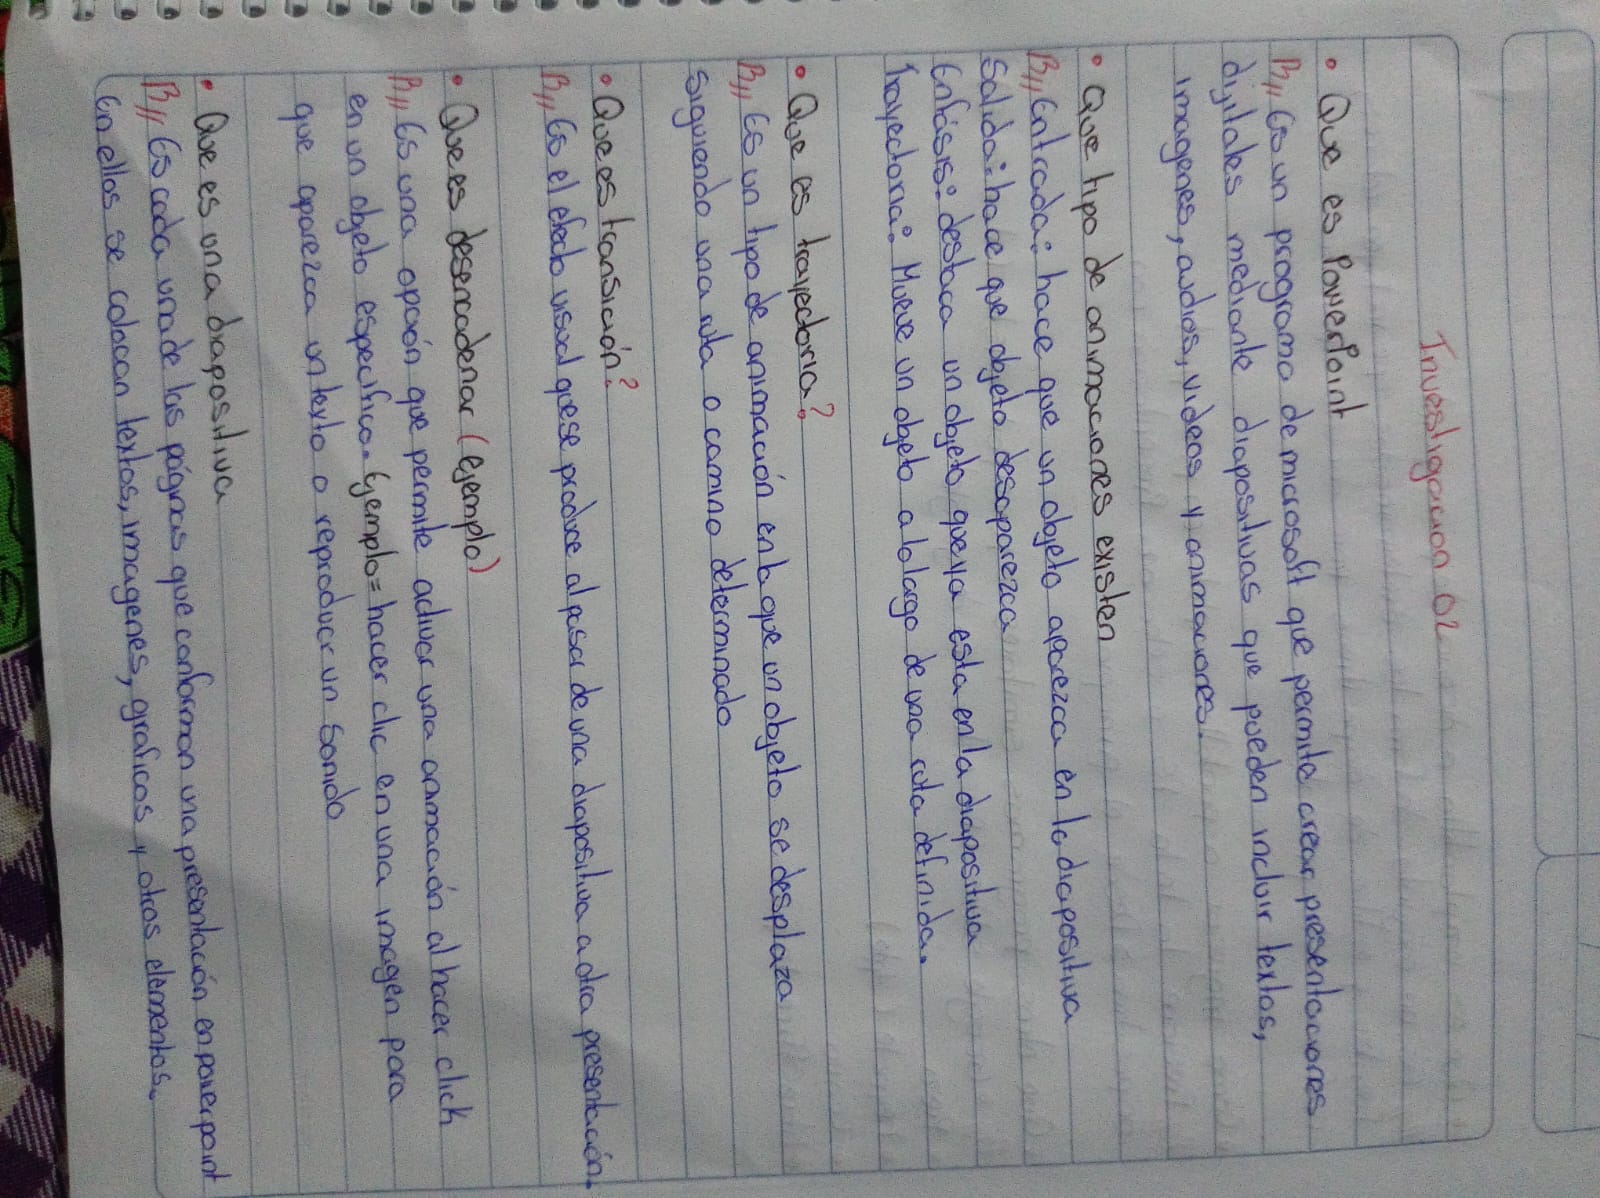 Investigacion 02
• Que es PowerPoint
R// Es un programa de microsoft que permite crear presentaciones
digitales mediante diapositivas que pueden incluir textos,
imagenes, audios, videos y animaciones.
• Que tipo de animaciones existen
R// Entrada: hace que un objeto aparezca en la diapositiva
Salida: hace que objeto desaparezca
Enfásis: destaca un objeto que ya esta en la diapositiva
trayectoria: Mueve un objeto a lo largo de una ruta definida.
• Que es trayectoria?
R// Es un tipo de animación en la que un objeto se desplaza
siguiendo una ruta o camino determinado
• Que es transición?
R// Es el efecto visual que se produce al pasar de una diapositiva a otra presentación.
• Que es desencadenar (ejemplo)
R// Es una opción que permite activar una animación al hacer click
en un objeto especifico. Ejemplo= hacer clic en una imagen para
que aparezca un texto o reproducir un sonido
• Que es una diapositiva
R// Es cada una de las páginas que conforman una presentación en powerpoint
En ellas se colocan textos, imagenes, graficos y otros elementos.